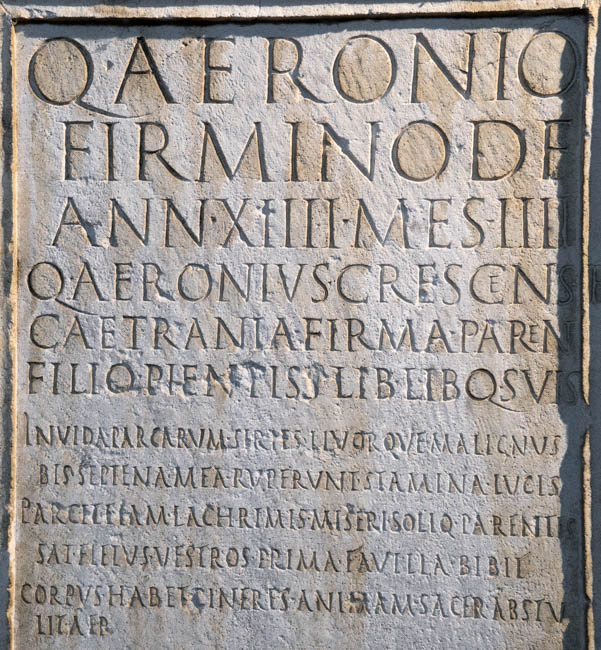 Q·AERONIO
FIRMINO·DE
ANN·XIIII·MES·IIII
Q·AERONIVS·CRESCENS
CAETRANIA·FIRMA·PAREN
FILIO·PIENTISS·LIB·LIBQ·SVIS
INVIDA·PARCARVM·SERIES·LIVORQVE·MALIGNVS
BIS·SEPTENA·MEA·RVPERVNT·STAMINA·LVCIS
PARCITE·IAM·LACHRIMIS·MISERI·SOLIQ·PARENTIS
SAT·FLETVS·VESTROS·PRIMA·FAVILLA·BIBIT
CORPVS·HABET·CINERES·ANIMAM·SACER·ABSTV
LIT·AER